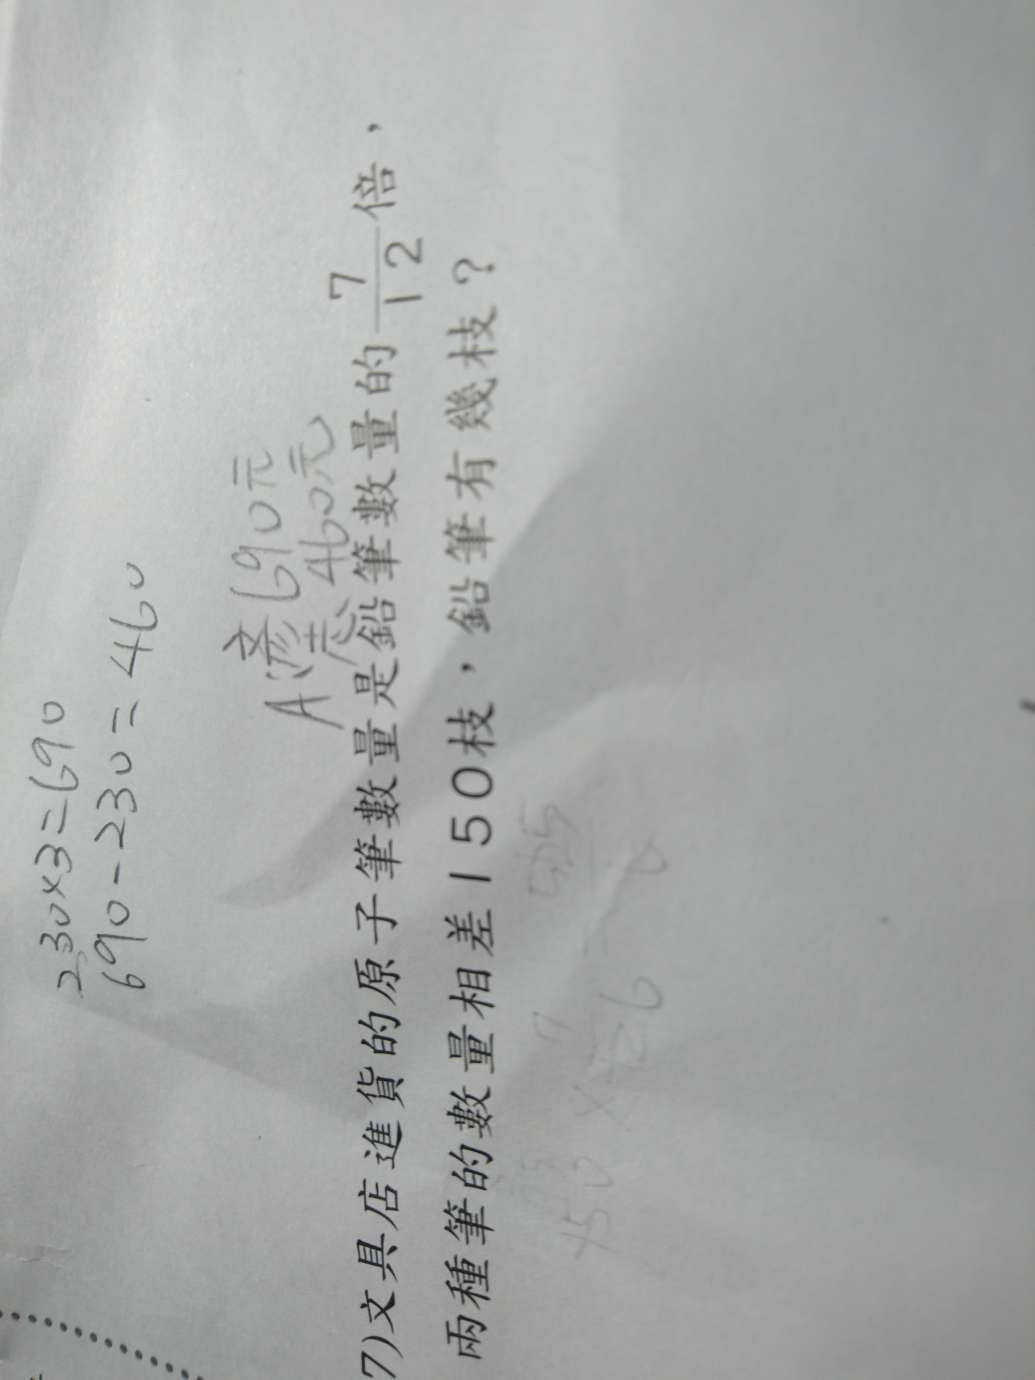 230×3=690
690-230=460
A彥690元
志460元
7)文具店進貨的原子筆數量是鉛筆數量的7/12倍，
兩種筆的數量相差150枝，鉛筆有幾枝？
150×7/12